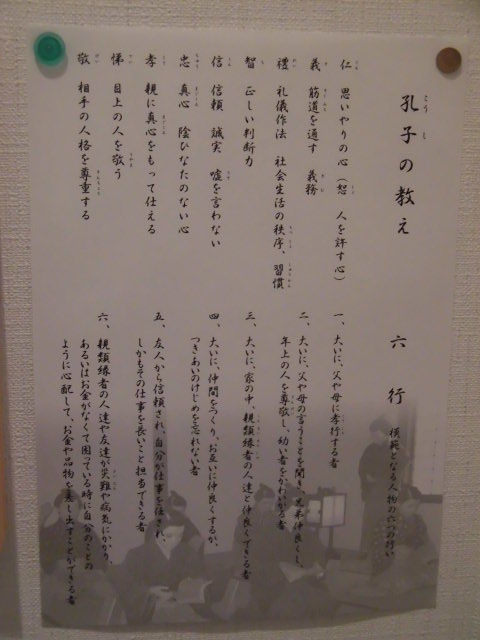 孔子の教え
仁 思いやりの心(恕 人を許す心)
義 筋道を通す 義務
禮 礼儀作法 社会生活の秩序、習慣
智 正しい判断力
信 信頼 誠実 嘘を言わない
忠 真心 陰ひなたのない心
孝 親に真心をもって仕える
悌 目上の人を敬う
敬 相手の人格を尊重する
六行 模範となる人物の六つの行い
一、大いに、父や母に孝行する者
二、大いに、父や母の言うことを聞き、兄弟仲良くし、
年上の人を尊敬し、幼い者をかわいがる者
三、大いに、家の中、親類縁者の人達と仲良くできる者
四、大いに、仲間をつくり、お互いに仲良くするが、
つきあいのけじめを忘れない者
五、友人から信頼され、自分が仕事を任され、
しかもその仕事を長いこと担当できる者
六、親類縁者の人達や友達が災難や病気にかかり、
あるいはお金がなくて困っている時に自分のことの
ように心配して、お金や品物を差し出すことができる者